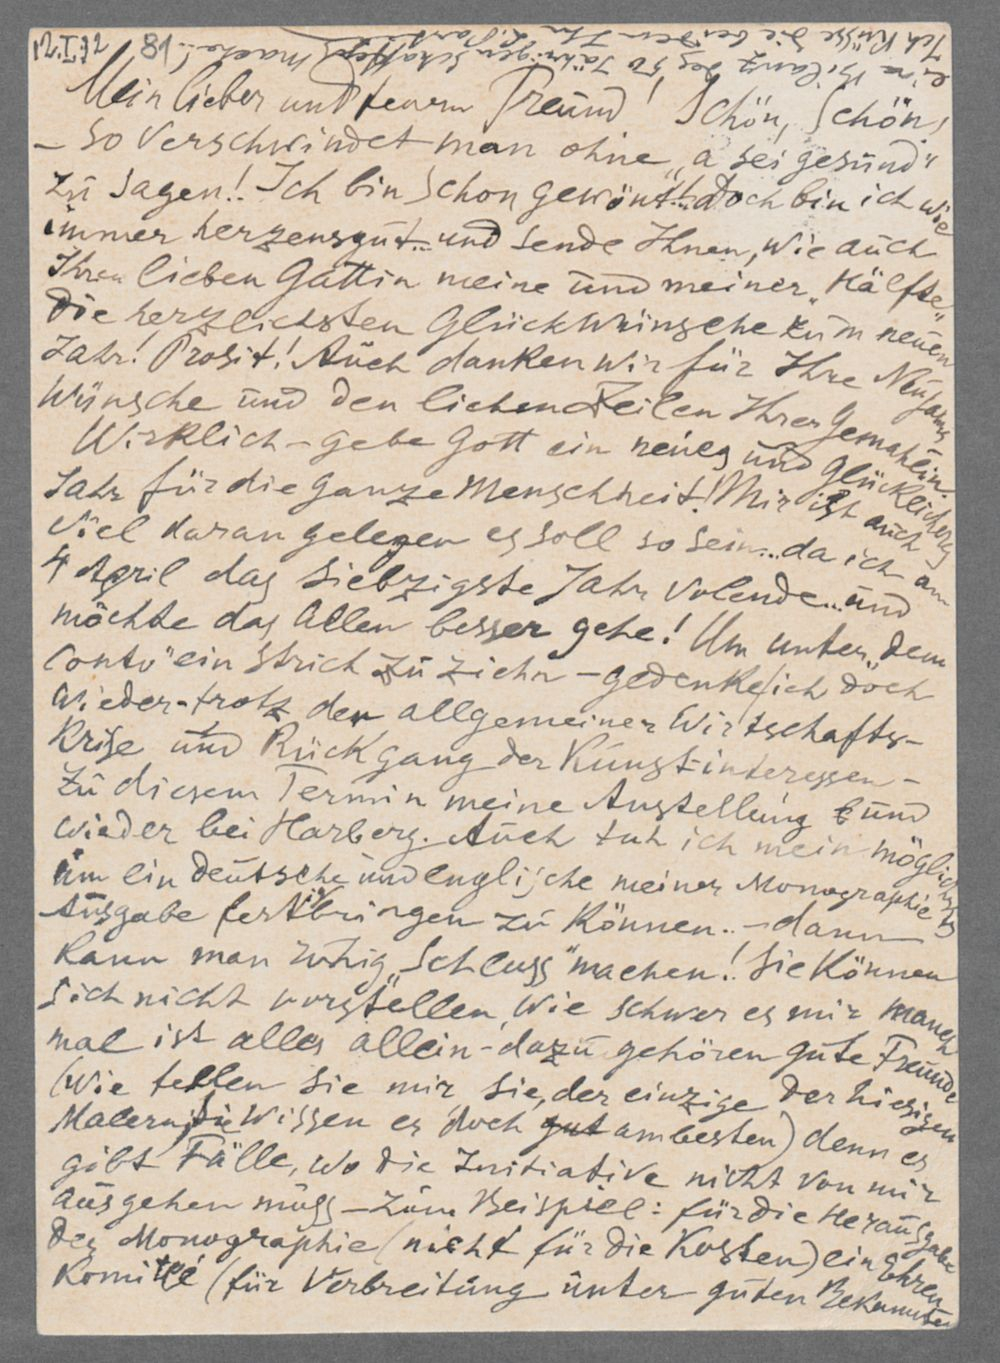 12.I.32 81
Mein lieber und teurer Freund! Schön, Schön,
– so verschwindet man ohne „a sei gesund“
zu sagen! Ich bin schon gewönt.. doch bin ich wie
immer herzensgut.. und sende Ihnen, wie auch
Ihren lieben Gattin meine und meiner „Hälfte“
die herzlichsten Glückwünsche zum neuen
Jahr! Prosit! Auch danken wir für Ihre Neujahrs
Wünsche und den lieben Zeilen Ihrer Gemahlin.
Wirklich – gebe Gott ein neues und glückliches
Jahr für die ganze Menschheit! Mir ist auch
viel daran gelegen es soll so sein... da ich am
4 April das siebzigste Jahr volende... und
möchte das Allen besser gehe! Um unter „dem
Conto“ ein Strich zu ziehn – gedenke ich doch
wieder – trotz der allgemeiner Wirtschafts-
Krise und Rückgang der Kunst-interessen –
zu diesem Termin meine Austellung und
wieder bei Harberg. Auch tuh ich mein möglichstes
um ein deutsche und englische meiner Monographie
Ausgabe fertigbringen zu können.. – dann
kann man ruhig „Schluss“ machen! Sie können
sich nicht vorstellen, wie schwer es mir manch
mal ist alles allein – dazu gehören gute Freunde
(wie fehlen Sie mir Sie, der einzige der hiesigen
Malern, Sie wissen es doch gut am besten) denn es
gibt Fälle, wo die Initiative nicht von mir
ausgehen muss – zum Beispiel: für die Herausgabe
der Monographie (nicht für die Kosten) ein Ehren
Komitté (für Verbreitung unter guten Bekannten
eine Bilanz des 50 jährigen Schaffens mache..!
Ich küsse die beiden Ihr